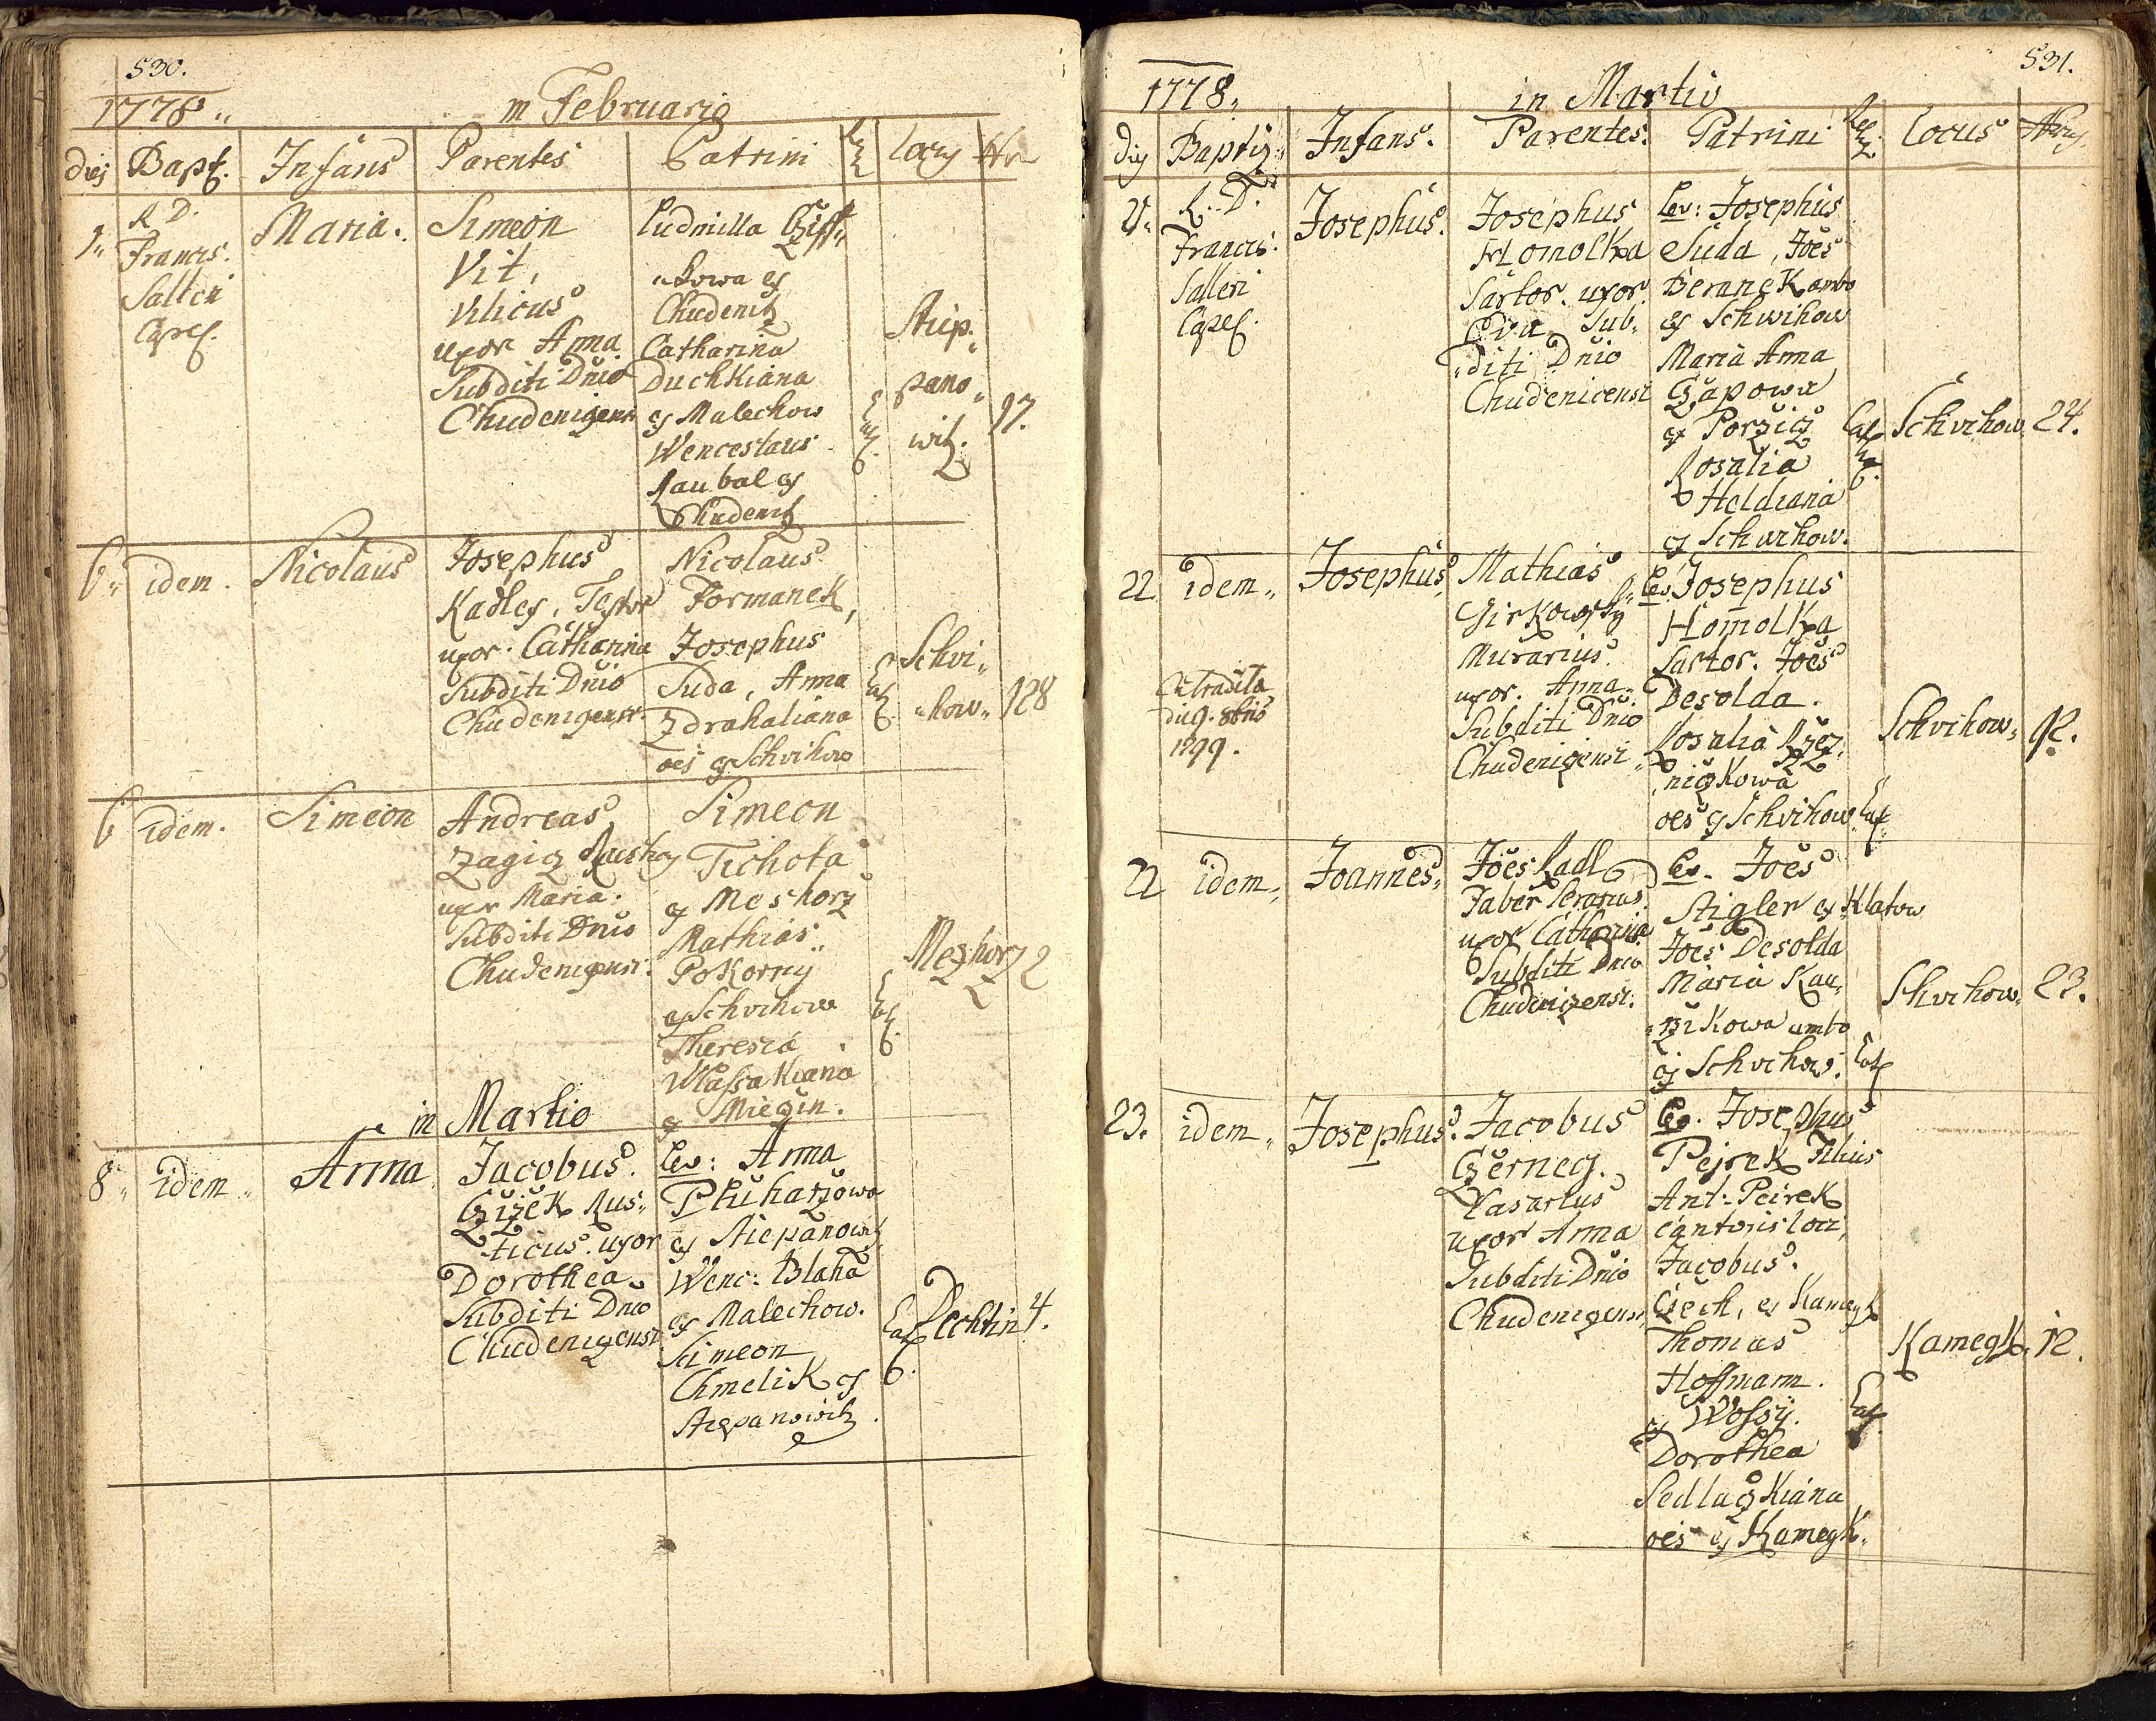 530.
1778 „
in Februario
dies Bapt. Infans Parentes Patrini Rel. Locus Nr
1„ R. D. Francis. Salleri Capel.
Maria.
Simeon
Vit,
Vilicus
uxor Anna
Subditi Dnio
Chudenicensi
Ludmilla
„kowa ex
Chudenitz
Catharina
Duchkiana
ex Malechow
Wenceslaus
Raubal ex
Chudenitz
Stiep„
pano„
witz.
17.
6„ idem. Nicolaus
Josephus
Kadlecz, Textor
uxor. Catharina
Subditi Dnio
Chudenicensi
Nicolaus
Formanek,
Josephus
Suda, Anna
Zdrahaliana
oes ex Schvihow
Cat.
Schvi„
„how„
128
6 idem. Simeon
Andreas
Zagicz
uxor Maria.
Subditi Dnio
Chudenicensi.
Simeon
Tichota
ex Meshorz
Mathias
Pokorny
ex Schvihow
Theresia
Wlassakiana
ex Miecin.
Cat.
Mezhorz 2
in Martio
8„ idem„ Anna
Jacobus
Czizek Rus„
ticus. uxor
Dorothea
Subditi Dnio
Chudenicensi
Lev: Anna
Pluharzowa
ex Stiepanowitz
Wenc: Blaha
ex Malechow.
Simeon
Chmelik ex
Stiepanowitz
Cat.
Dechtin 4.
531.
1778„
in Martio
dies Baptiz„ Infans. Parentes. Patrini Rel. Locus Nrus
R. D. Francis. Salleri Capel.
Josephus.
Josephus
Homolka
Sartor. uxor.
Eva Sub„
„diti Dnio
Chudenicensi
Lev: Josephus
Suda, Joes
Beranek ambo
ex Schwihow
Maria Anna
Czapowa
ex Porzicz
Rosalia
Heldiana
ex Schwihow.
Cat.
Schvihow„ 24.
22 idem„ Josephus
Mathias
Girkowsky
Murarius.
uxor. Anna
Subditi Dnio
Chudenicensi
Lev: Josephus
Homolka
Sartor. Joes
Desolda.
Rosalia Rzez„
niczkowa
oes ex Schvihow. Cat.
Schvihow„ 92.
Extradita
die 9. 8bris
1799.
22 idem„ Joannes„
Joes Radl
Faber Serarius
uxor Catharina
Subditi Dnio
Chudenicensi.
Lev. Joes
Stigler ex Klatow
Joes Desolda
Maria Kau„
„kowa ambo
ex Schvihow. Cat.
Schvihow„ 23.
23. idem„ Josephus.
Jacobus
Czernecz.
Vasarius
uxor Anna
Subditi Dnio
Chudenicensi,
Lev. Josephus
Pejrek Filius
Ant: Peirek
Cantoris loci,
Jacobus
Czech, ex Kamegk
Thomas
Hoffmann.
ex Wossy.
Dorothea
Sedlaczkiana
oes ex Kamegk.
Cat.
Kamegk„ 12.